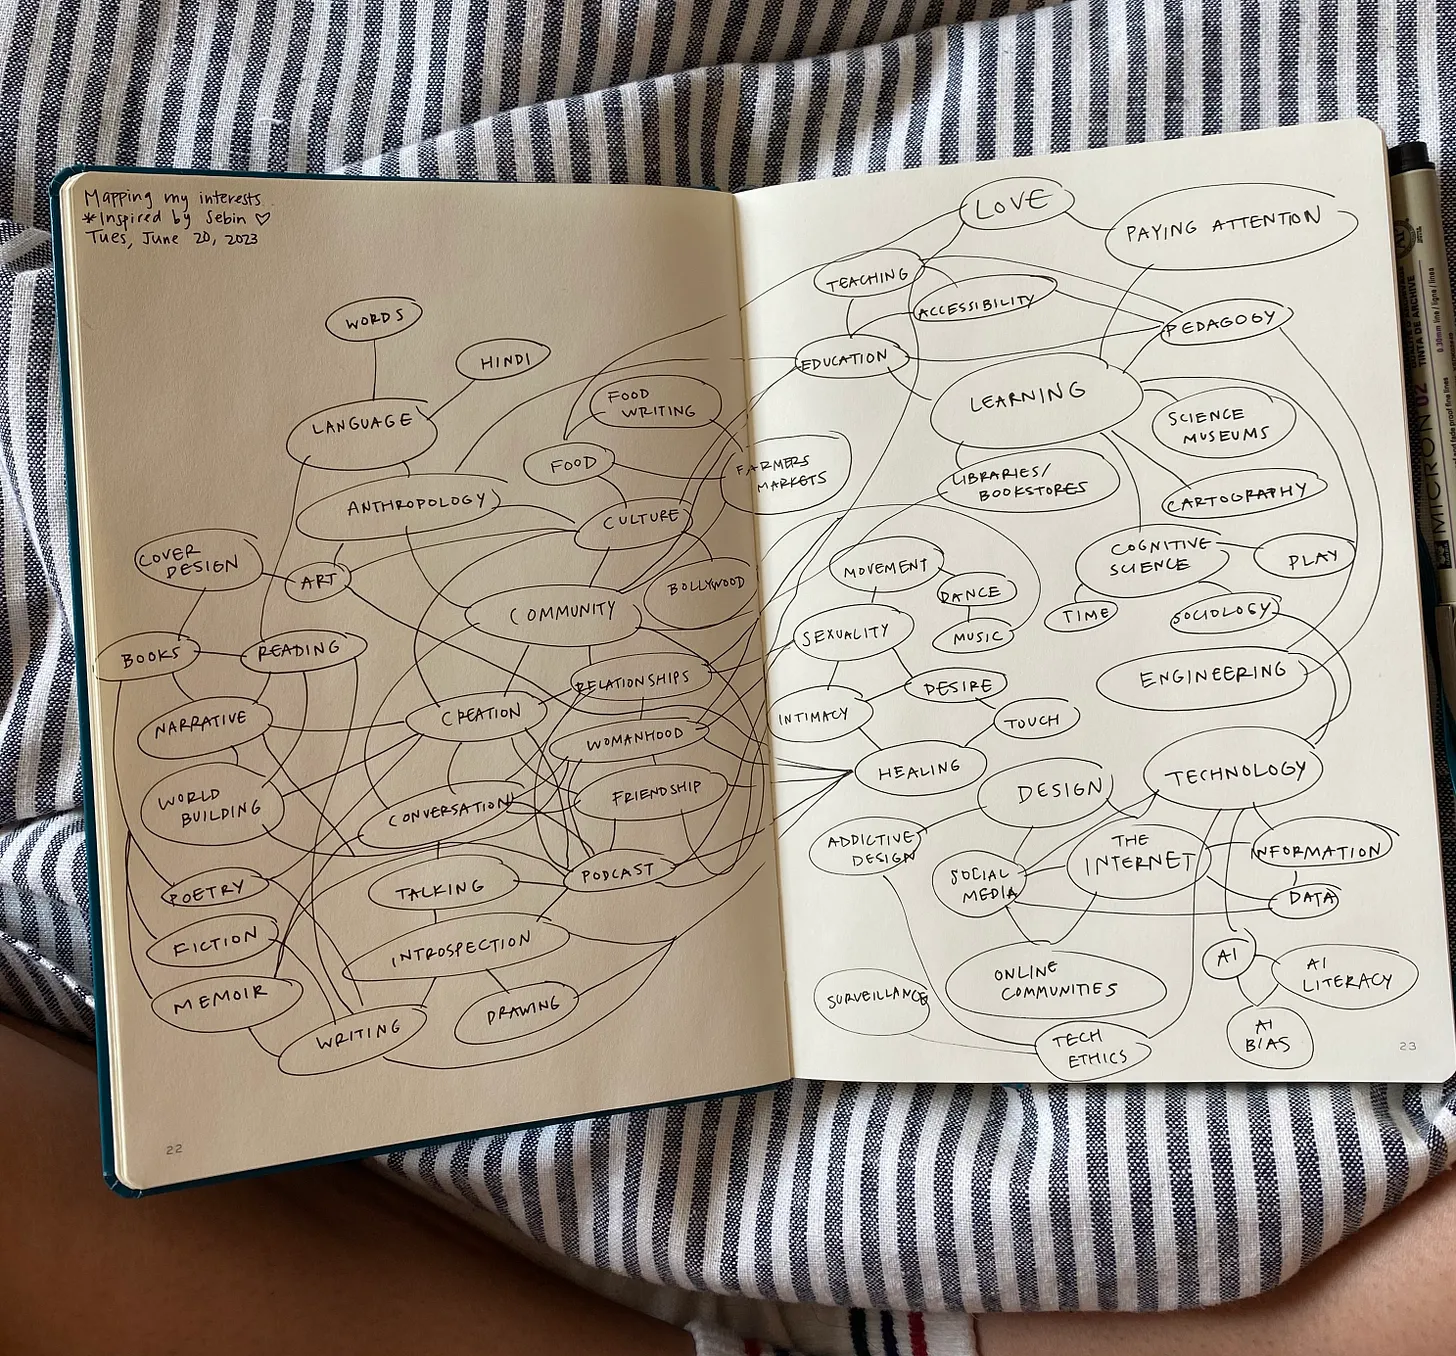 Mapping my interests
*Inspired by Sebin ♡
Tues, June 20, 2023
WORDS
HINDI
LANGUAGE
FOOD
WRITING
FOOD
ANTHROPOLOGY
CULTURE
COVER
DESIGN
ART
BOLLYWOOD
COMMUNITY
BOOKS
READING
RELATIONSHIPS
NARRATIVE
CREATION
WOMANHOOD
WORLD
BUILDING
CONVERSATION
FRIENDSHIP
POETRY
TALKING
PODCAST
FICTION
INTROSPECTION
MEMOIR
DRAWING
WRITING
22
LOVE
PAYING ATTENTION
TEACHING
ACCESSIBILITY
PEDAGOGY
EDUCATION
LEARNING
SCIENCE
MUSEUMS
FARMERS
MARKETS
LIBRARIES/
BOOKSTORES
CARTOGRAPHY
MOVEMENT
COGNITIVE
SCIENCE
PLAY
DANCE
TIME
SOCIOLOGY
SEXUALITY
MUSIC
ENGINEERING
DESIRE
INTIMACY
TOUCH
HEALING
TECHNOLOGY
DESIGN
ADDICTIVE
DESIGN
THE
INTERNET
INFORMATION
SOCIAL
MEDIA
DATA
AI
AI
LITERACY
ONLINE
COMMUNITIES
SURVEILLANCE
AI
BIAS
TECH
ETHICS
23
MICRON 02
TINTA DE ARCHIVE
0.30mm line / ligne / lines